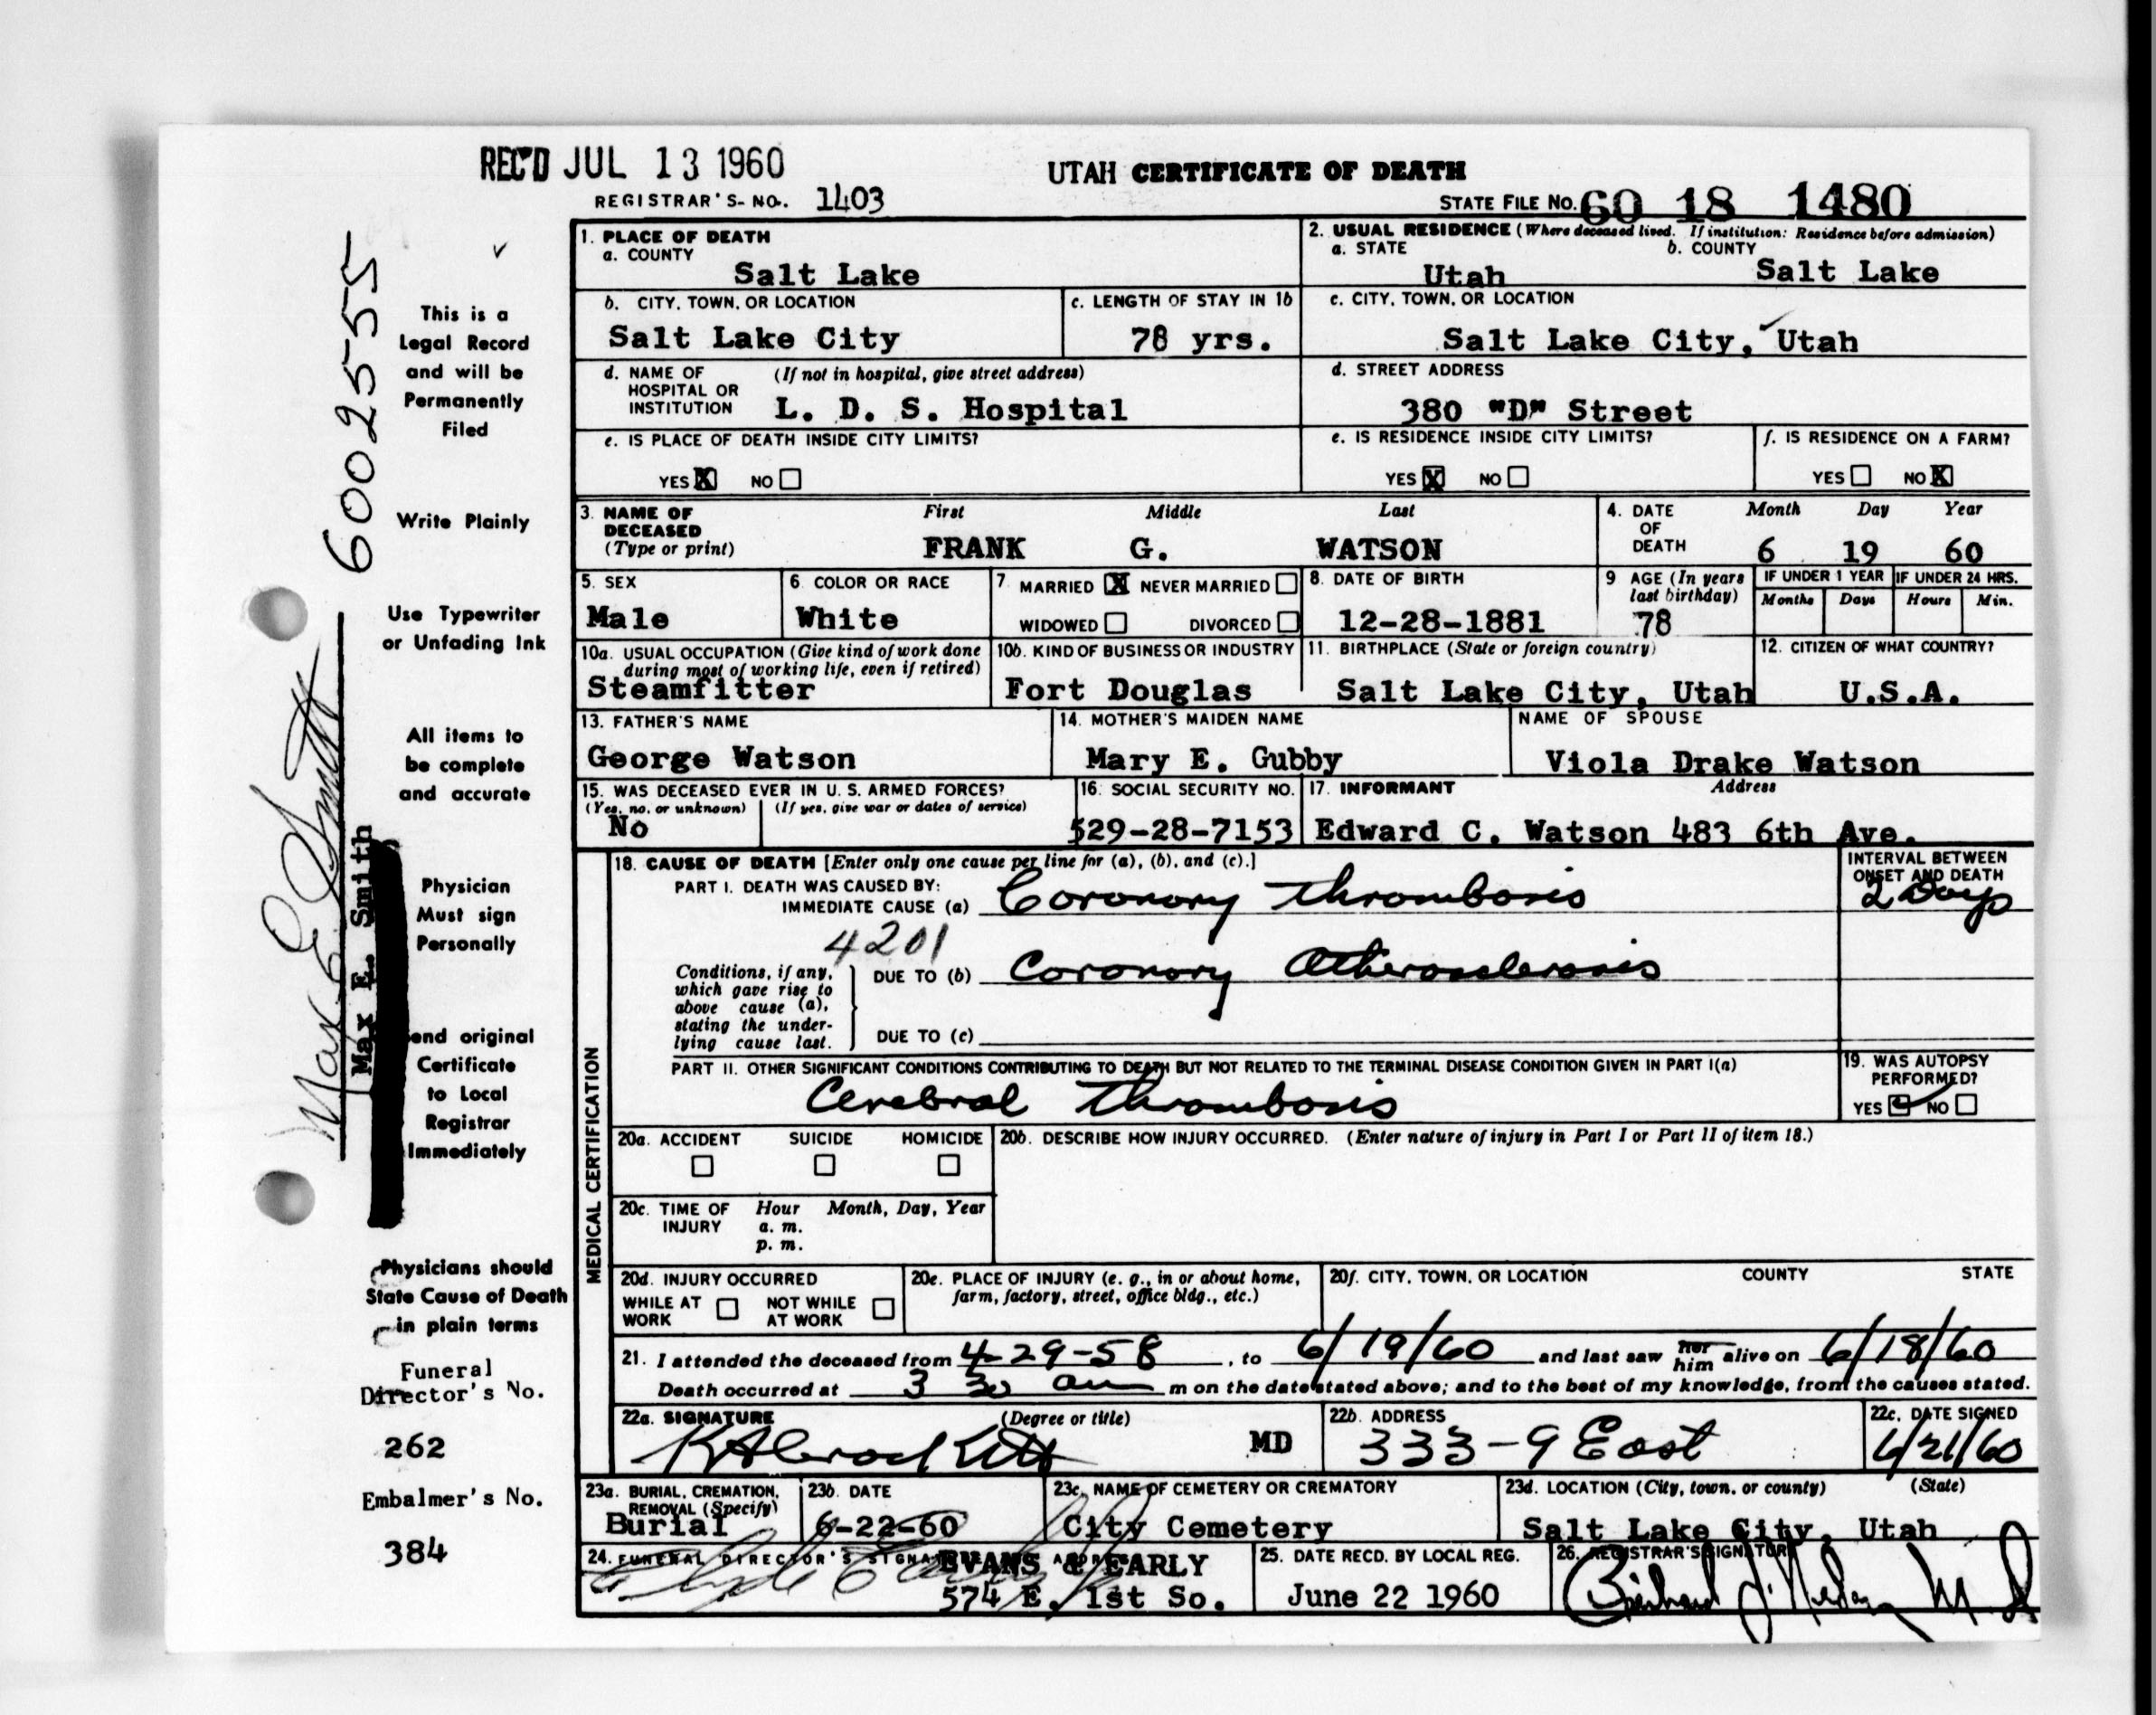 REC'D JUL 13 1960
UTAH CERTIFICATE OF DEATH
REGISTRAR'S- NO. 1403
STATE FILE NO. 60 18 1480
6002555
This is a
Legal Record
and will be
Permanently
Filed
Write Plainly
Use Typewriter
or Unfading Ink
All items to
be complete
and accurate
Physician
Must sign
Personally
Max E Smith
Max E. Smith
end original
Certificate
to Local
Registrar
Immediately
Physicians should
State Cause of Death
in plain terms
Funeral
Director's No.
262
Embalmer's No.
384
1. PLACE OF DEATH
a. COUNTY
Salt Lake
2. USUAL RESIDENCE (Where deceased lived. If institution: Residence before admission)
a. STATE b. COUNTY
Utah Salt Lake
b. CITY, TOWN, OR LOCATION
Salt Lake City
c. LENGTH OF STAY IN 1b
78 yrs.
c. CITY, TOWN, OR LOCATION
Salt Lake City, Utah
d. NAME OF (If not in hospital, give street address)
HOSPITAL OR
INSTITUTION L. D. S. Hospital
d. STREET ADDRESS
380 "D" Street
e. IS PLACE OF DEATH INSIDE CITY LIMITS?
YES X NO
e. IS RESIDENCE INSIDE CITY LIMITS?
YES X NO
f. IS RESIDENCE ON A FARM?
YES NO X
3. NAME OF First Middle Last
DECEASED
(Type or print) FRANK G. WATSON
4. DATE Month Day Year
OF
DEATH 6 19 60
5. SEX
Male
6. COLOR OR RACE
White
7. MARRIED X NEVER MARRIED
WIDOWED DIVORCED
8. DATE OF BIRTH
12-28-1881
9 AGE (In years
last birthday)
78
IF UNDER 1 YEAR IF UNDER 24 HRS.
Months Days Hours Min.
10a. USUAL OCCUPATION (Give kind of work done
during most of working life, even if retired)
Steamfitter
10b. KIND OF BUSINESS OR INDUSTRY
Fort Douglas
11. BIRTHPLACE (State or foreign country)
Salt Lake City, Utah
12. CITIZEN OF WHAT COUNTRY?
U.S.A.
13. FATHER'S NAME
George Watson
14. MOTHER'S MAIDEN NAME
Mary E. Gubby
NAME OF SPOUSE
Viola Drake Watson
15. WAS DECEASED EVER IN U. S. ARMED FORCES?
(Yes, no, or unknown) (If yes, give war or dates of service)
No
16. SOCIAL SECURITY NO.
529-28-7153
17. INFORMANT Address
Edward C. Watson 483 6th Ave.
MEDICAL CERTIFICATION
18. CAUSE OF DEATH [Enter only one cause per line for (a), (b), and (c).]
PART I. DEATH WAS CAUSED BY:
IMMEDIATE CAUSE (a) Coronary Thrombosis
INTERVAL BETWEEN
ONSET AND DEATH
2 Days
4201
Conditions, if any,
which gave rise to
above cause (a),
stating the under-
lying cause last.
DUE TO (b) Coronary Atherosclerosis
DUE TO (c)
PART II. OTHER SIGNIFICANT CONDITIONS CONTRIBUTING TO DEATH BUT NOT RELATED TO THE TERMINAL DISEASE CONDITION GIVEN IN PART I(a)
Cerebral Thrombosis
19. WAS AUTOPSY
PERFORMED?
YES NO
20a. ACCIDENT SUICIDE HOMICIDE
20b. DESCRIBE HOW INJURY OCCURRED. (Enter nature of injury in Part I or Part II of item 18.)
20c. TIME OF Hour Month, Day, Year
INJURY a. m.
p. m.
20d. INJURY OCCURRED
WHILE AT NOT WHILE
WORK AT WORK
20e. PLACE OF INJURY (e. g., in or about home,
farm, factory, street, office bldg., etc.)
20f. CITY, TOWN, OR LOCATION COUNTY STATE
21. I attended the deceased from 4-29-58, to 6/19/60 and last saw her him alive on 6/18/60
Death occurred at 3 30 am m on the date stated above; and to the best of my knowledge, from the causes stated.
22a. SIGNATURE (Degree or title)
MD
22b. ADDRESS
333-9 East
22c. DATE SIGNED
6/21/60
23a. BURIAL, CREMATION,
REMOVAL (Specify)
Burial
23b. DATE
6-22-60
23c. NAME OF CEMETERY OR CREMATORY
City Cemetery
23d. LOCATION (City, town, or county) (State)
Salt Lake City, Utah
24. FUNERAL DIRECTOR'S SIGNATURE
EVANS & EARLY
574 E. 1st So.
25. DATE RECD. BY LOCAL REG.
June 22 1960
26. REGISTRAR'S SIGNATURE